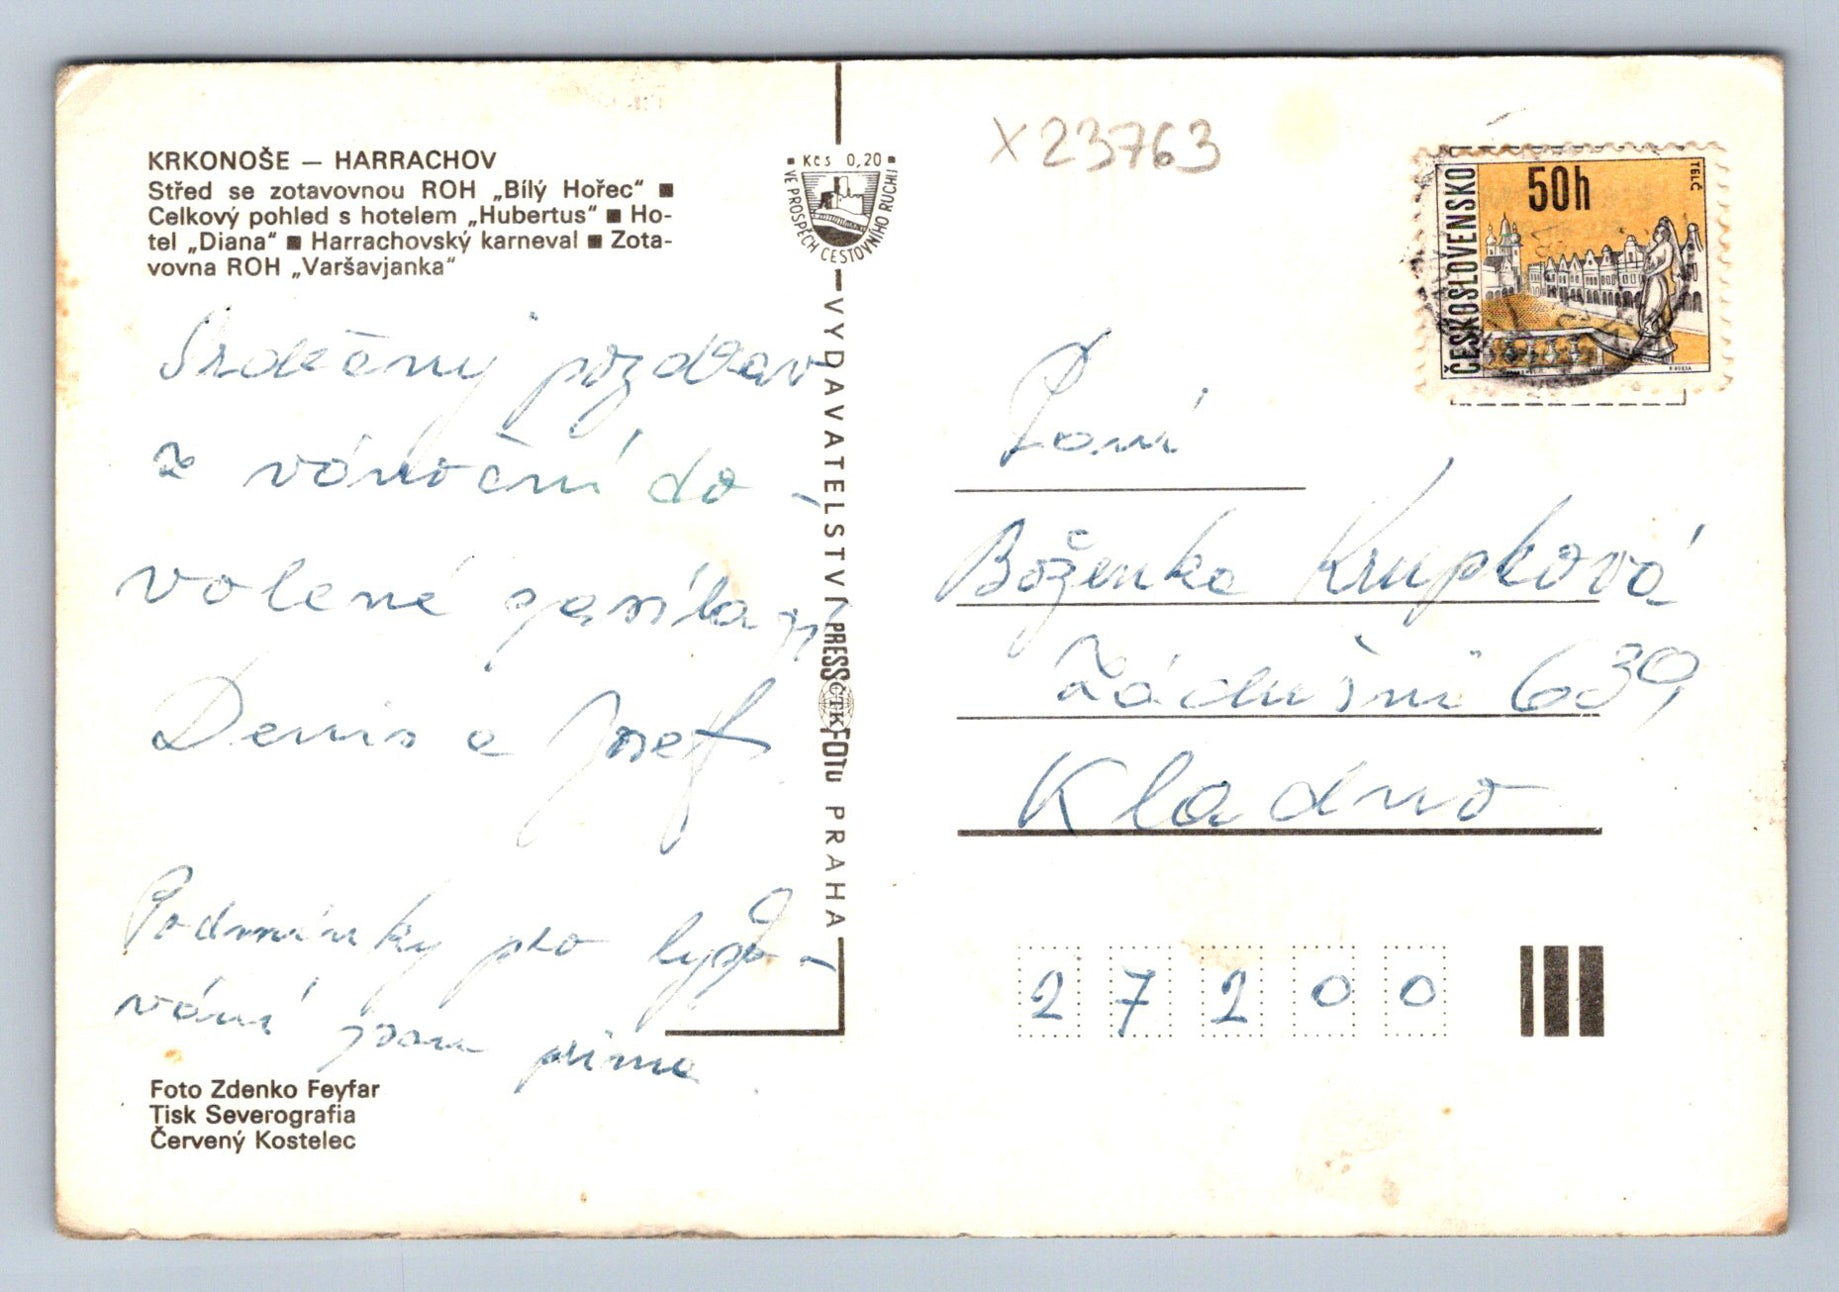 KRKONOŠE — HARRACHOV
Střed se zotavovnou ROH „Bílý Hořec" ■
Celkový pohled s hotelem „Hubertus" ■ Ho-
tel „Diana" ■ Harrachovský karneval ■ Zota-
vovna ROH „Varšavjanka"
Srdečný pozdrav
z vánoční do-
volené
Denis a Josef
Podmínky pro lyžo-
vání jsou prima
Foto Zdenko Feyfar
Tisk Severografia
Červený Kostelec
■ Kčs 0,20 ■
VE PROSPĚCH CESTOVNÍHO RUCHU
VYDAVATELSTVÍ PRESSFOTO PRAHA
ČTK
X23763
ČESKOSLOVENSKO
50h
TELČ
Paní
Boženka Krupková
Zádušní 639
Kladno
27200